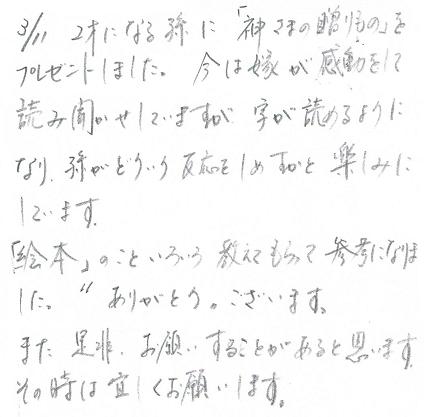 3/11 2才になる孫に「神さまの贈りもの」を
プレゼントしました。今は嫁が感動をして
読み聞かせしていますが字が読めるように
なり、孫がどういう反応をしめすかと楽しみに
しています。
「絵本」のこといろいろ教えてもらって参考になりま
した。〃ありがとう。ございます。
また是非、お願いすることがあると思います。
その時は宜しくお願いします。